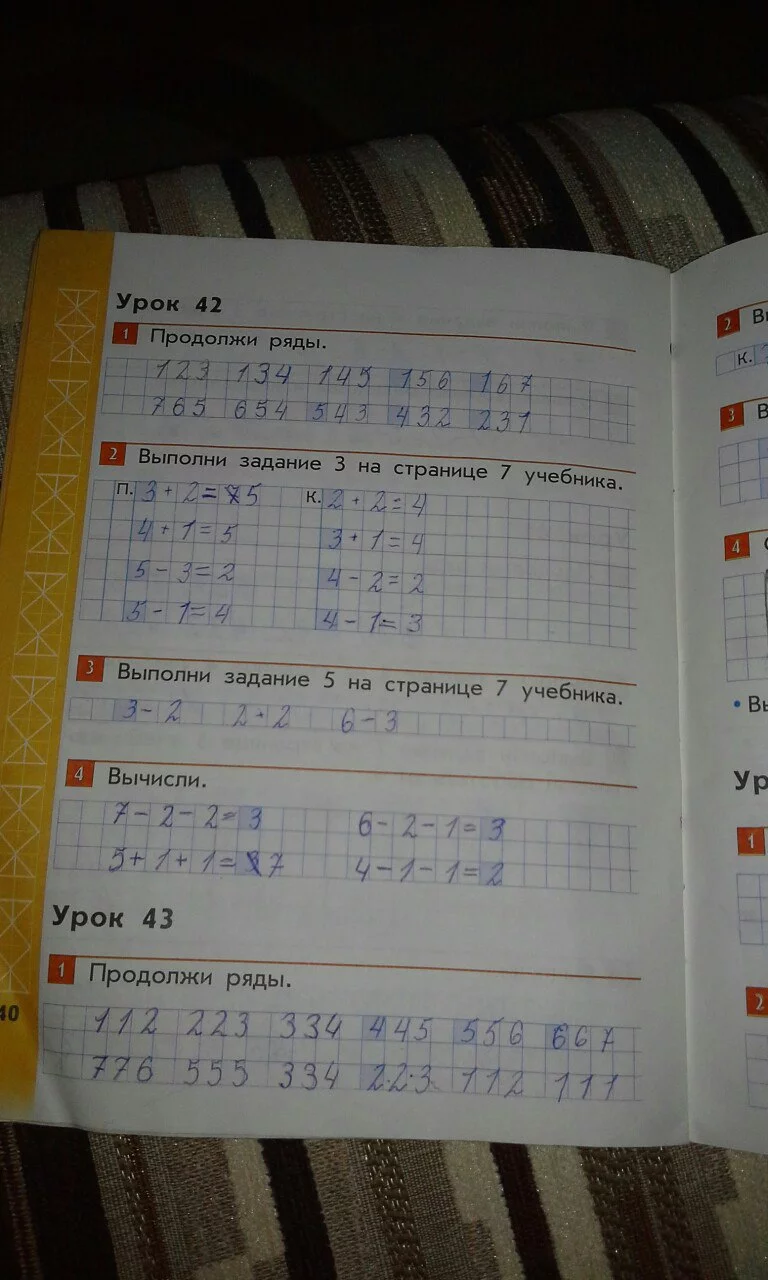 Урок 42
1 Продолжи ряды.
123 134 145 156 167
765 654 543 432 231
2 Выполни задание 3 на странице 7 учебника.
П. 3 + 2 = 5 К. 2 + 2 = 4
4 + 1 = 5 3 + 1 = 4
5 - 3 = 2 4 - 2 = 2
5 - 1 = 4 4 - 1 = 3
3 Выполни задание 5 на странице 7 учебника.
3 - 2 2 + 2 6 - 3
4 Вычисли.
7 - 2 - 2 = 3 6 - 2 - 1 = 3
5 + 1 + 1 = 7 4 - 1 - 1 = 2
Урок 43
1 Продолжи ряды.
112 223 334 445 556 667
776 555 334 223 112 111
40
2 В
К.
3 В
4
• Вы
Ур
1
2